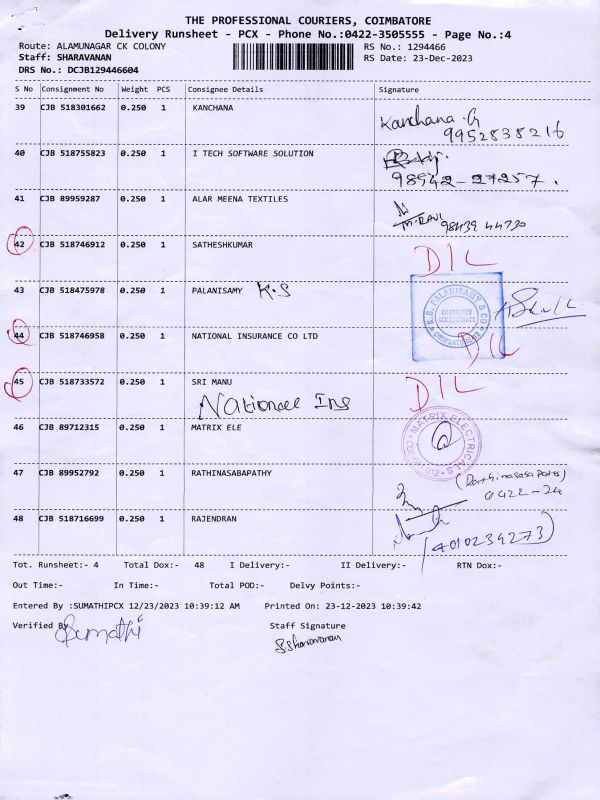 THE PROFESSIONAL COURIERS, COIMBATORE
Delivery Runsheet - PCX - Phone No.:0422-3505555 - Page No.:4
Route: ALAMUNAGAR CK COLONY RS No.: 1294466
Staff: SHARAVANAN RS Date: 23-Dec-2023
DRS No.: DCJB129446604
S No Consignment No Weight PCS Consignee Details Signature
39 CJB 518301662 0.250 1 KANCHANA Kanchana.G
9952838216
40 CJB 518755823 0.250 1 I TECH SOFTWARE SOLUTION
98942-27257.
41 CJB 89959287 0.250 1 ALAR MEENA TEXTILES
M.RAVI 98439 44730
42 CJB 518746912 0.250 1 SATHESHKUMAR DIL
43 CJB 518475978 0.250 1 PALANISAMY K.S
K.S. PALANISAMY & CO
CHARTERED
ACCOUNTANTS
COIMBATORE-12
44 CJB 518746958 0.250 1 NATIONAL INSURANCE CO LTD DIL
45 CJB 518733572 0.250 1 SRI MANU DIL
National Ins
46 CJB 89712315 0.250 1 MATRIX ELE
MATRIX ELECTRICALS
47 CJB 89952792 0.250 1 RATHINASABAPATHY
0422-24
48 CJB 518716699 0.250 1 RAJENDRAN
4010234273)
Tot. Runsheet:- 4 Total Dox:- 48 I Delivery:- II Delivery:- RTN Dox:-
Out Time:- In Time:- Total POD:- Delvy Points:-
Entered By :SUMATHIPCX 12/23/2023 10:39:12 AM Printed On: 23-12-2023 10:39:42
Verified By Staff Signature
Sumathi S.Sharavanan